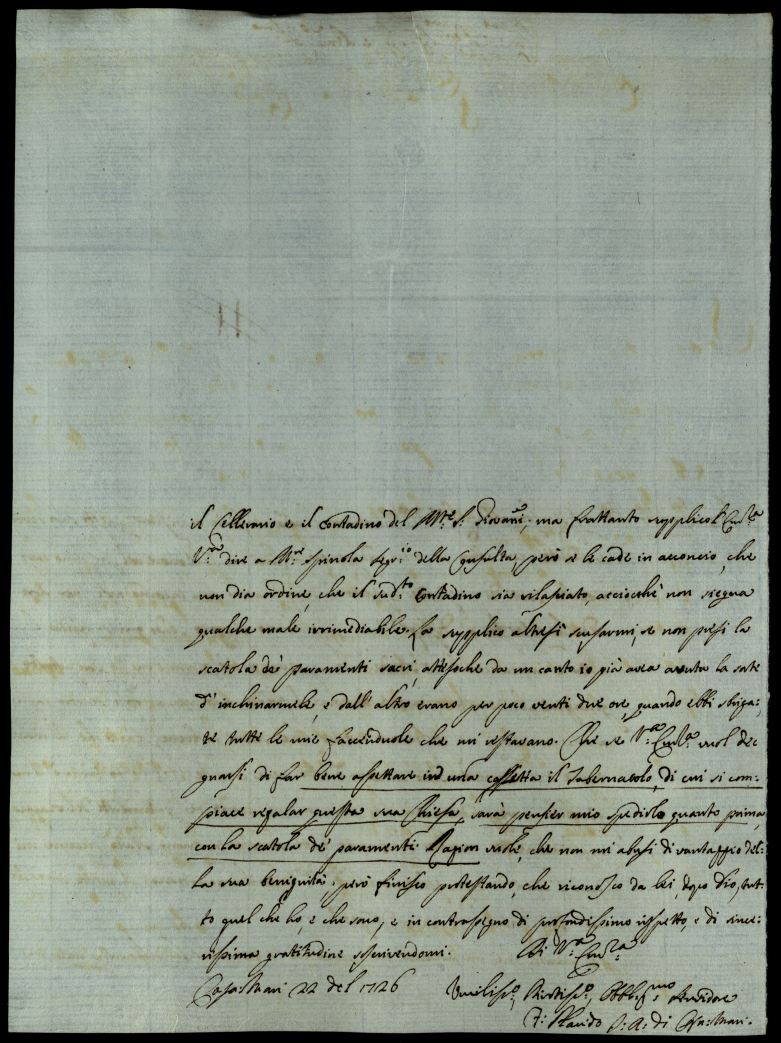 il Cellerario e il Contadino del M:te S: Giovañi; ma frattanto supplico l'Em:za
V:ra dire a M:re Spinola Segr:io della Consulta, però se le cade in acconcio, che
non dia ordine, che il sud:to Contadino sia rilasciato, acciocchè non siegua
qualche male irrimediabile. La supplico altresì scusarmi, se non presi la
scatola de' paramenti sacri, attesoche da un canto io già avea avuta la sorte
d'inchinarmele, e dall'altro erano per poco venti due ore, quando ebbi sbriga:
te tutte le mie faccenduole che mi restavano. Che se V:ra Em:za vuol de
gnarsi di far bene assettare in una cassetta il Tabernacolo, di cui si com:
piace regalar questa sua Chiesa, sarà pensier mio spedirlo quanto prima,
con la scatola de' paramenti. Ragion vuole, che non mi abusi di vantaggio del:
la sua benignità; però finisco protestando, che riconosco da Lei, dopo Dio, tut:
to quel che ho, e che sono, e in contrassegno di profondissimo rispetto, e di since:
rissima gratitudine soscrivendomi.
Di V:ra Em:za
Casamari 22 del 1726
Umiliss:o, Divotiss:o, Obblig:mo Servidore
F: Placido P: A: di Casamari.